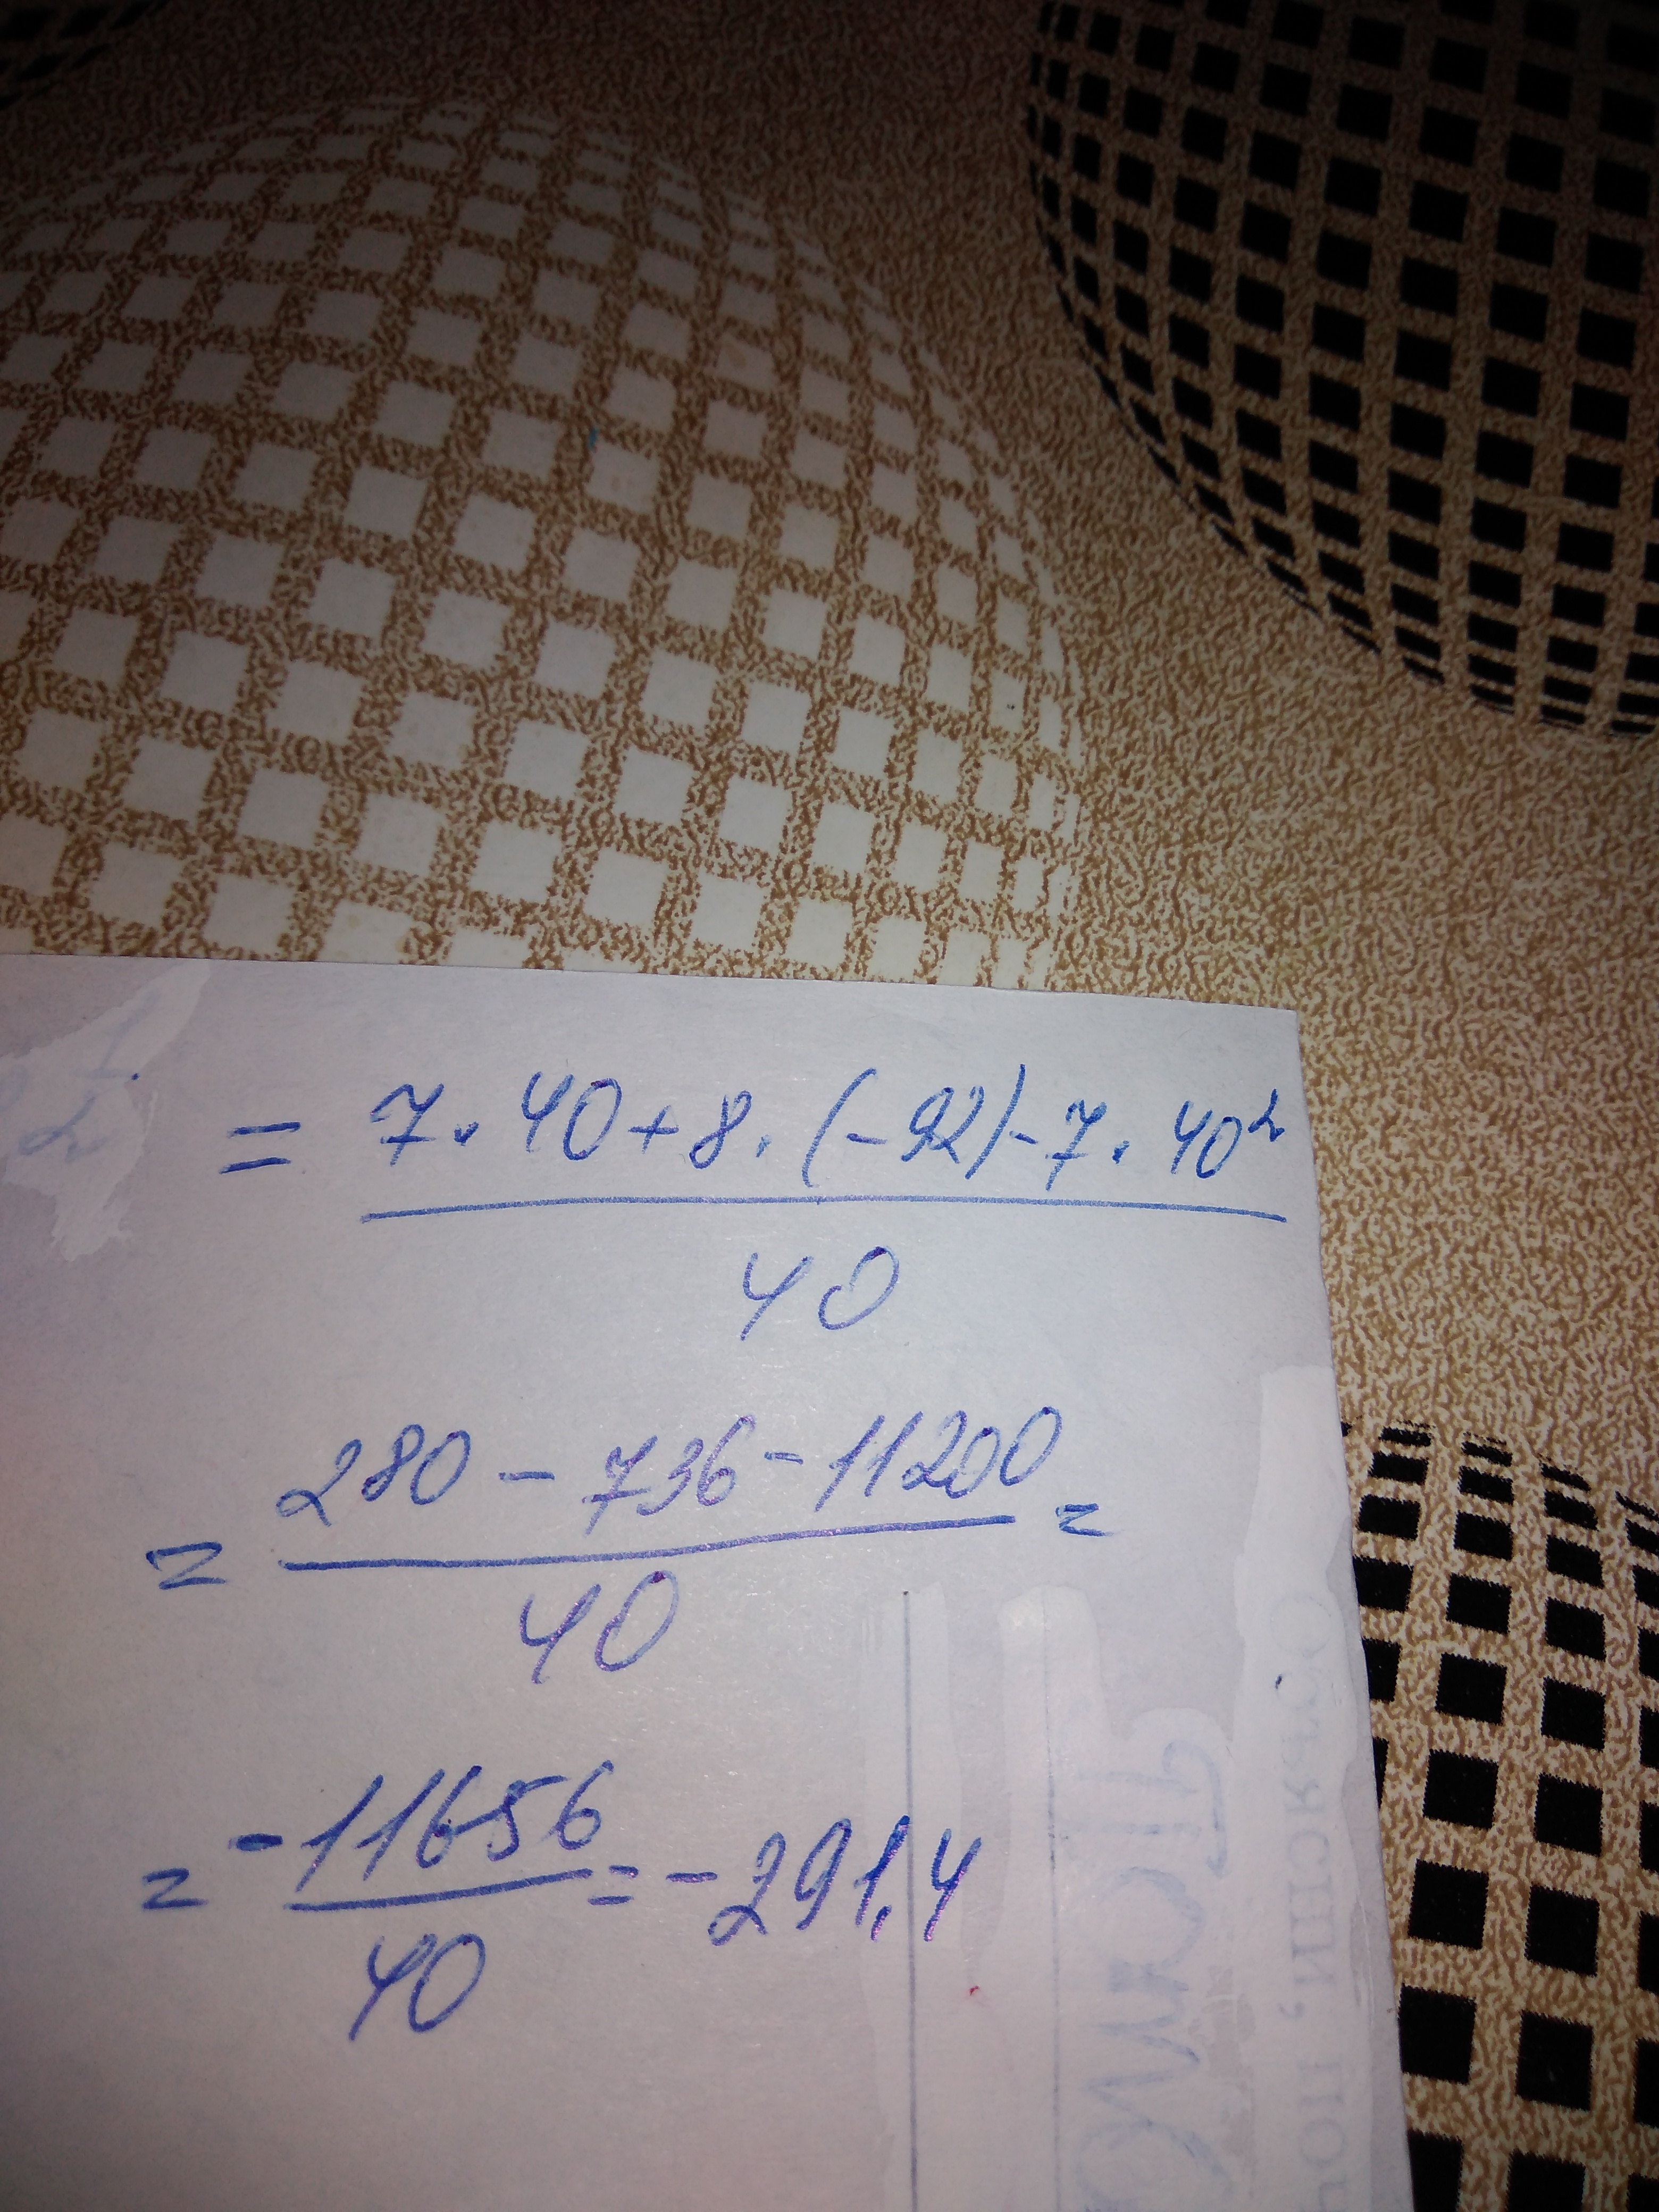 = 7. 40 + 8. (-92) - 7. 40²
40
= 280 - 736 - 11200 =
40
= -11656 = -291,4
40